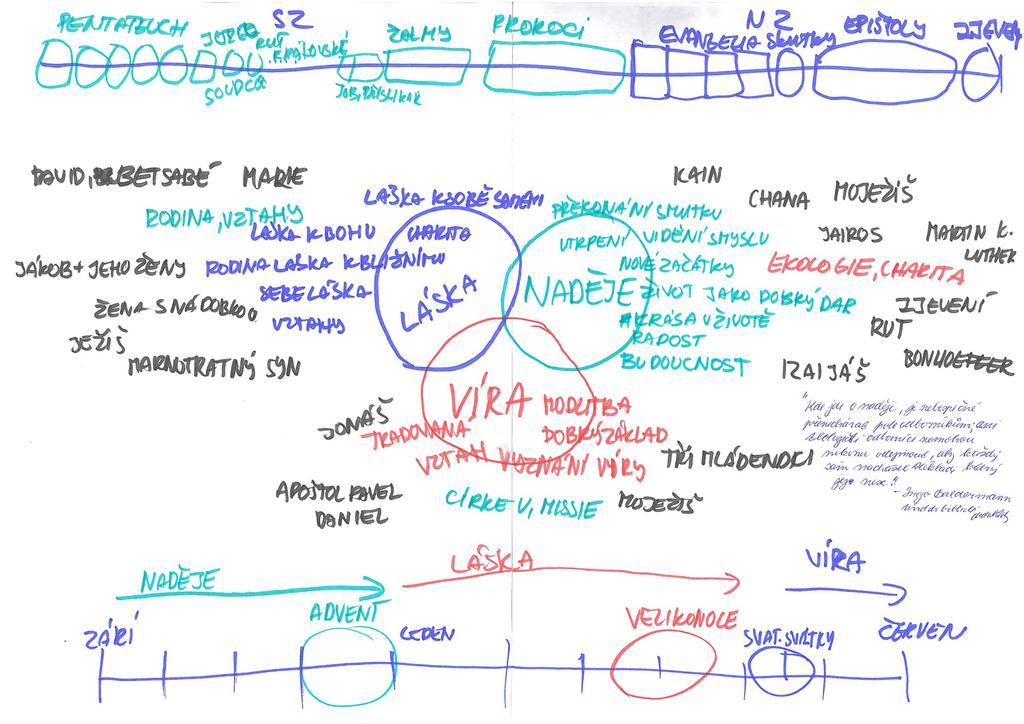 PENTATEUCH
SZ
JOZUE
RUT
KRÁLOVSKÉ
ŽALMY
PROROCI
NZ
EVANGELIA SKUTKY
EPIŠTOLY
ZJEVENÍ
SOUDCŮ
JOB, PŘÍSL. KAZ
DAVID, BETSABÉ
MARIE
LÁSKA K SOBĚ SAMÉMU
KAIN
CHANA
MOJEŽÍŠ
RODINA, VZTAHY
PŘEKONÁNÍ SMUTKU
LÁSKA K BOHU
CHARITA
UTRPENÍ
VIDĚNÍ SMYSLU
JAIROS
MARTIN K.
LUTHER
JÁKOB + JEHO ŽENY
RODINA LÁSKA K BLIŽNÍMU
NOVÉ ZAČÁTKY
EKOLOGIE, CHARITA
SEBELÁSKA
LÁSKA
NADĚJE
ŽIVOT JAKO DOBRÝ DAR
ŽENA S NÁDOBKOU
ZJEVENÍ
VZTAHY
KRÁSA V ŽIVOTĚ
RUT
JEŽÍŠ
RADOST
MARNOTRATNÝ SYN
BUDOUCNOST
IZAIJÁŠ
BONHOEFFER
VÍRA
MODLITBA
JONÁŠ
TRADOVANÁ
DOBRÝ ZÁKLAD
VZTAH
VYZNÁNÍ VÍRY
TŘI MLÁDENCI
"Kde jde o naději, je nebezpečné
odborníkům,
odborníci nemohou
aby každý
sám nacházel základ, který
jej nese."
- Ingo Baldermann
APOŠTOL PAVEL
DANIEL
CÍRKEV, MISSIE
MOJEŽÍŠ
NADĚJE
LÁSKA
VÍRA
ADVENT
VELIKONOCE
ZÁŘÍ
LEDEN
SVAT. SVÁTKY
ČERVEN